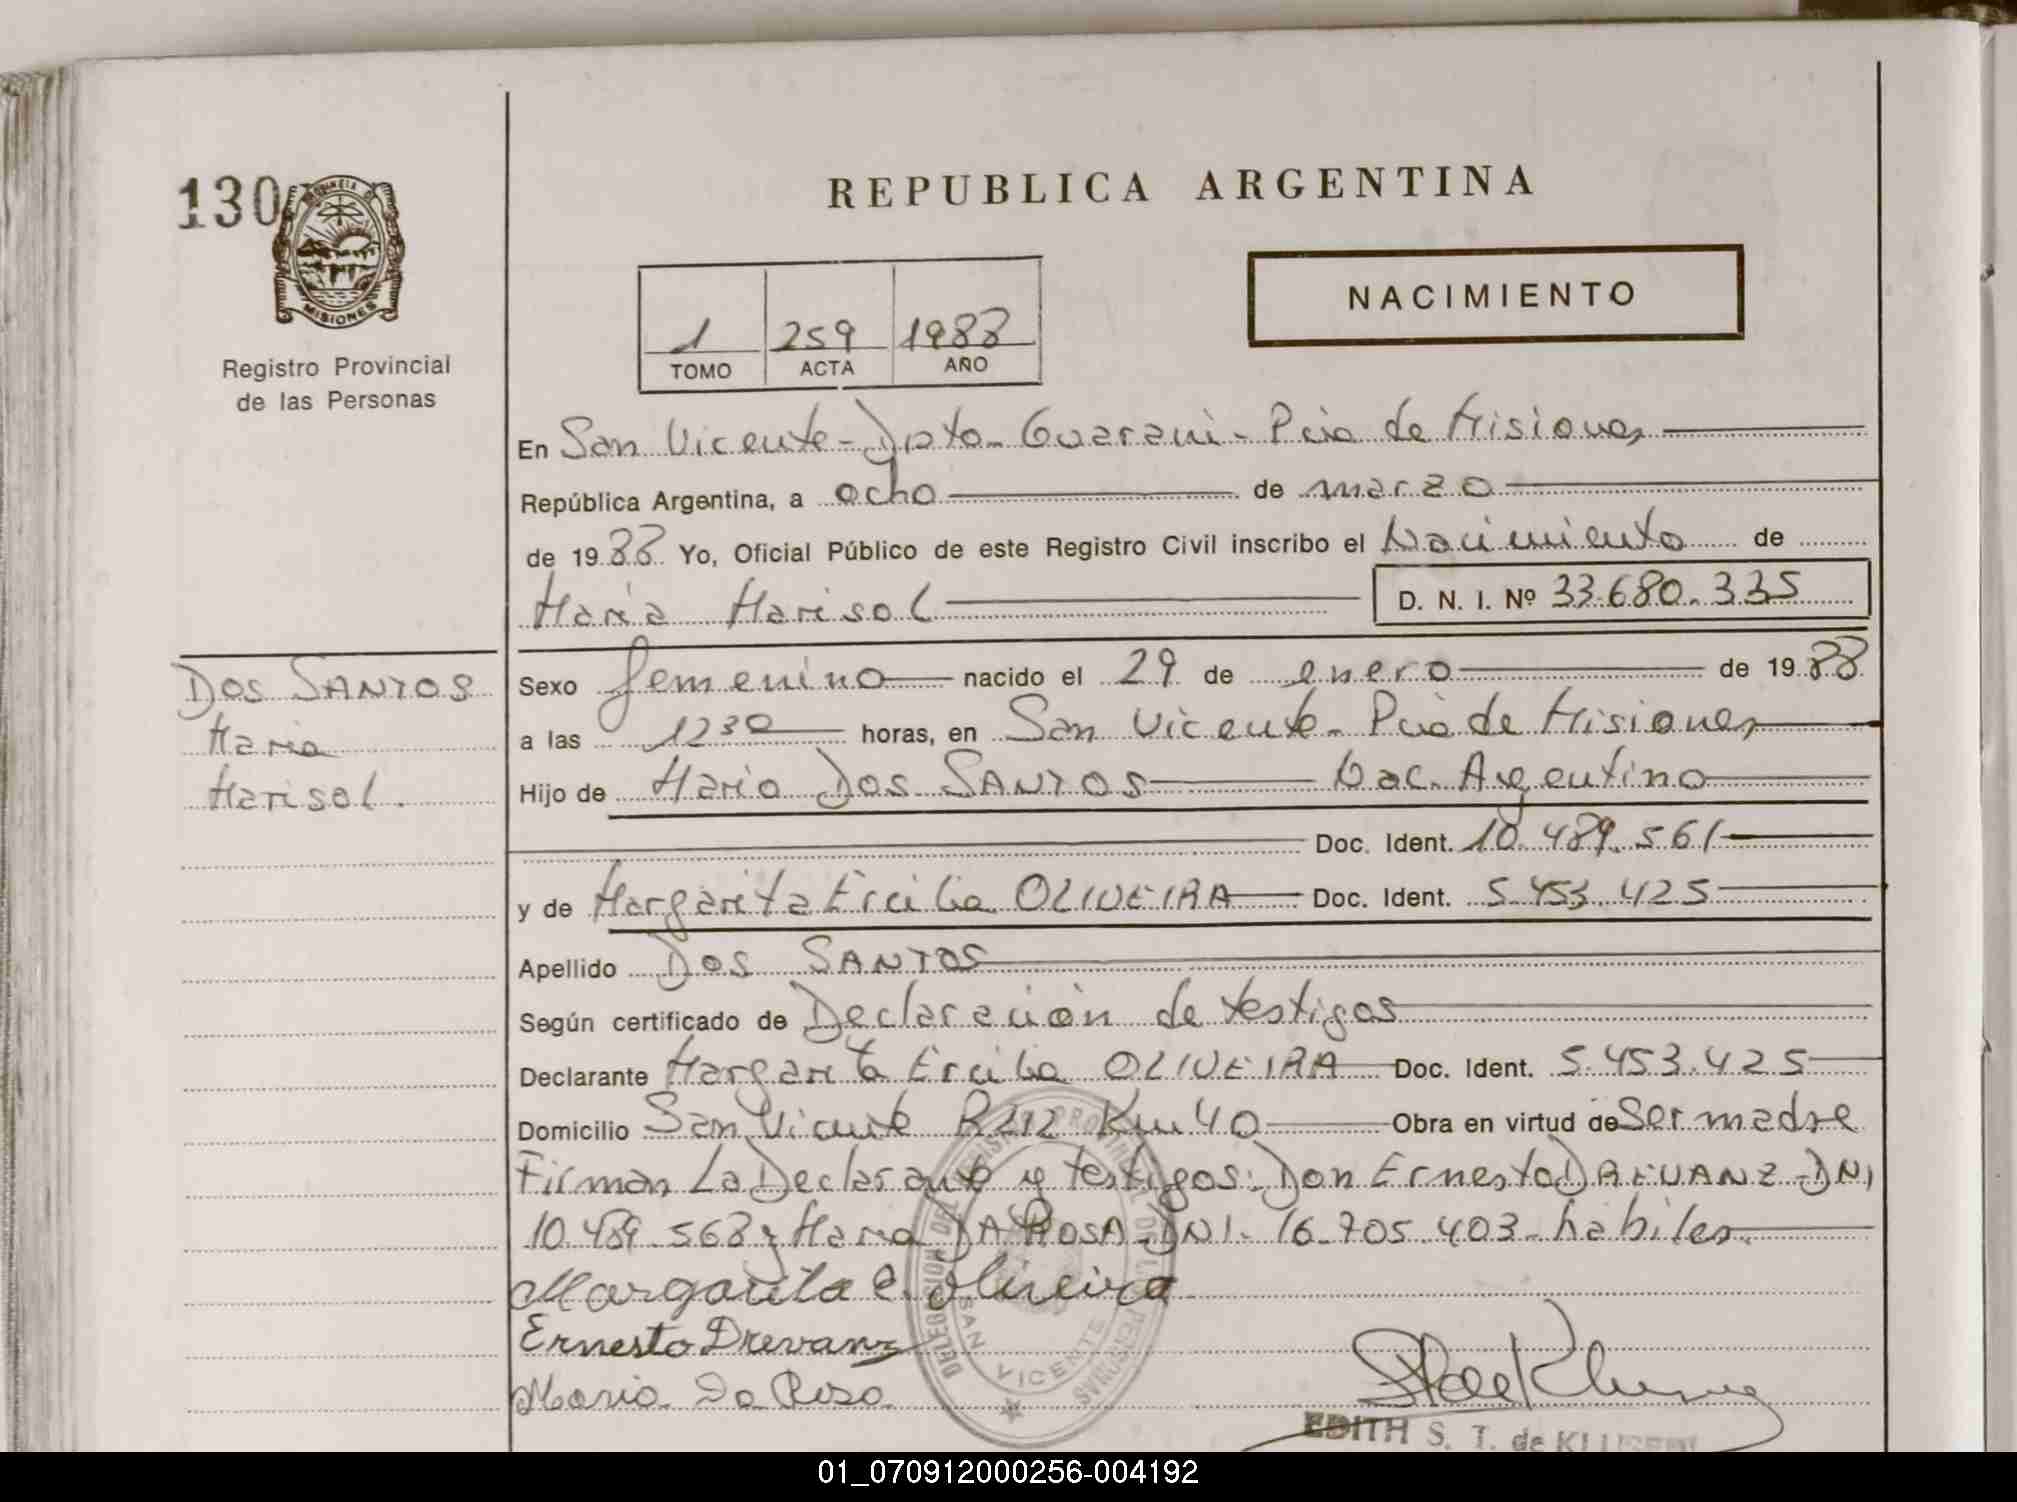 130
PROVINCIA D
MISIONES
Registro Provincial
de las Personas
REPUBLICA ARGENTINA
NACIMIENTO
1 259 1988
TOMO ACTA AÑO
En San Vicente - Dpto - Guaraní - Pcia de Misiones
República Argentina, a ocho de marzo
de 1988 Yo, Oficial Público de este Registro Civil inscribo el Nacimiento de
María Marisol D. N. I. Nº 33.680.335
DOS SANTOS
María
Marisol.
Sexo femenino nacido el 29 de enero de 1988
a las 12 30 horas, en San Vicente - Pcia de Misiones
Hijo de Mario DOS SANTOS Nac. Argentino
Doc. Ident. 10.489.561
y de Margarita Ercilia OLIVEIRA Doc. Ident. 5.453.425
Apellido DOS SANTOS
Según certificado de Declaración de testigos
Declarante Margarita Ercilia OLIVEIRA Doc. Ident. 5.453.425
Domicilio San Vicente R212 Km 40 Obra en virtud de Ser madre
Firman La Declarante y testigos: Don Ernesto DREVANZ - DNI
10.489.568 y María DA ROSA - DNI - 16.705.403 - hábiles.
Margarita E. Oliveira
Ernesto Drevanz
Maria Da Rosa
SAN VICENTE
EDITH S. T. de
01_070912000256-004192